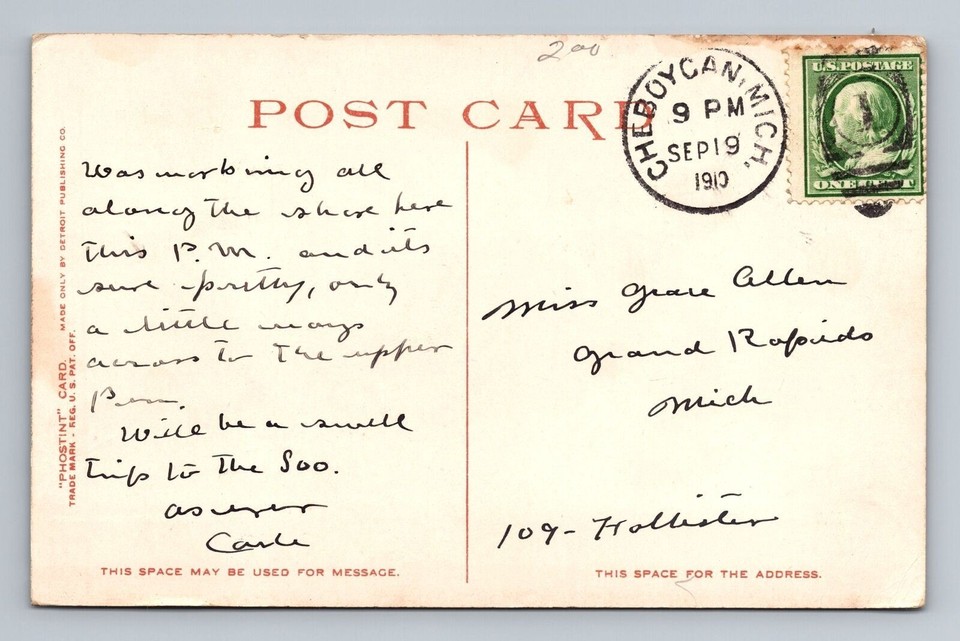 2⁰⁰
POST CARD
CHEBOYGAN, MICH.
9 PM
SEP 19
1910
U.S. POSTAGE
1
ONE CENT
"PHOSTINT" CARD. MADE ONLY BY DETROIT PUBLISHING CO.
TRADE MARK - REG. U. S. PAT. OFF.
Was working all
along the shore here
this P. M. and its
sure pretty, only
a little ways
across to the upper
Pen.
Will be a swell
trip to the Soo.
as ever
THIS SPACE MAY BE USED FOR MESSAGE.
Miss Grace Allen
Grand Rapids
Mich
109 - Hollister
THIS SPACE FOR THE ADDRESS.